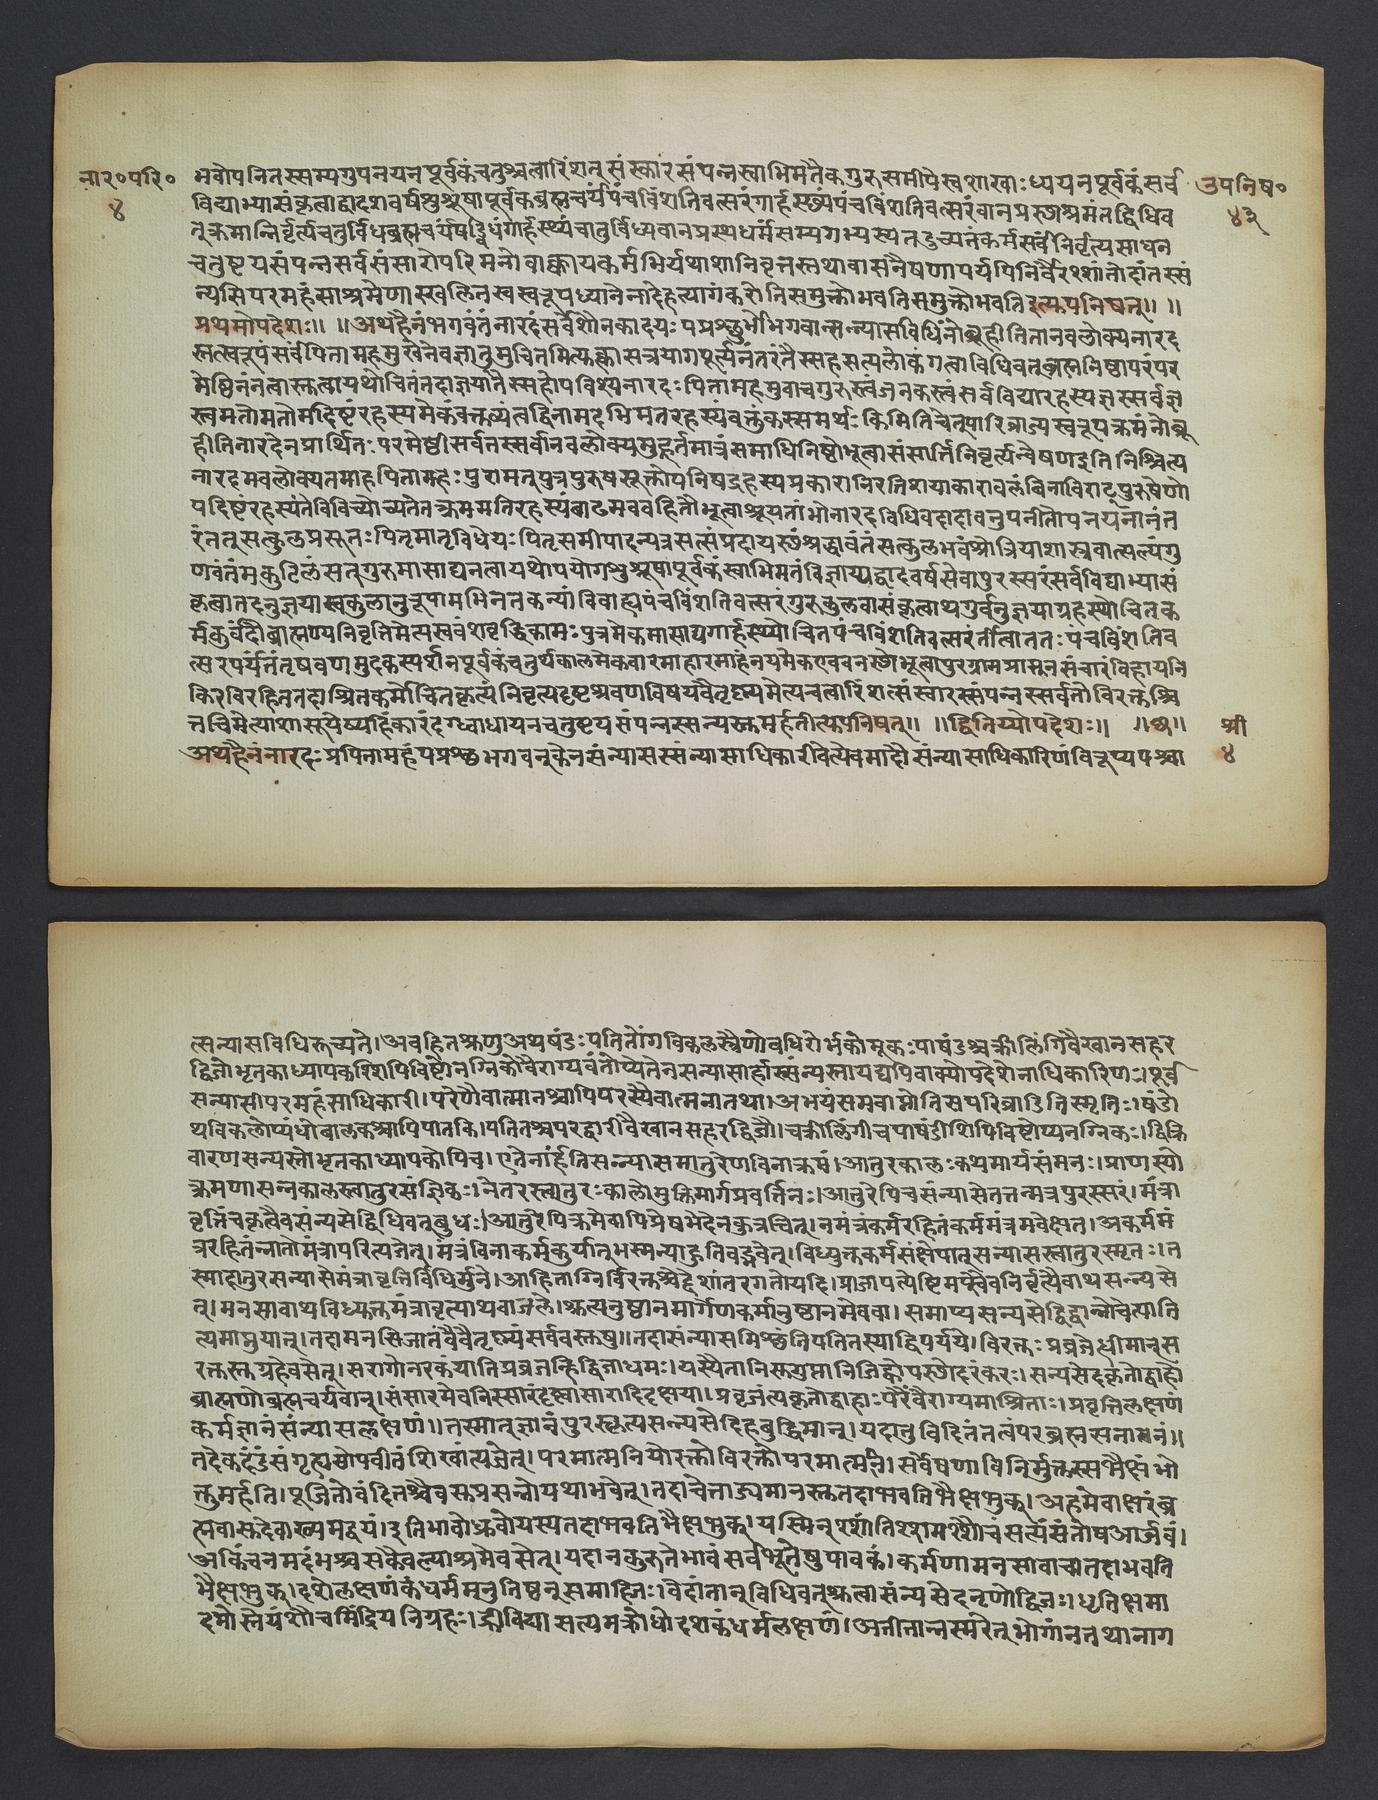 नार॰परि॰
४
उपनिष॰
४३
मवोपनितस्सम्यगुपनयनपूर्वकंचतुश्चत्वारिंशत् संस्कारसंपन्नस्वाभिमतैकगुरुसमीपेस्वशाखाःध्ययनपूर्वकंसर्व
विद्याभ्यासंकृत्वाद्वादशवर्षशुश्रूषापूर्वकंब्रह्मचर्यंपंचविंशतिवत्सरंगार्हस्थ्यंपंचविंशतिवत्सरंवानप्रस्थाश्रमंतद्विधिव
त्क्रमान्निर्वृर्त्यचतुर्विधब्रह्मचर्यंषड्विधंगार्हस्थ्यंचातुर्विध्यवानप्रस्थधर्मंसम्यगभ्यस्यतदुच्यतंकर्मसर्वंनिर्वृत्यसाधन
चतुष्टयसंपन्नसर्वसंसारोपरिमनोवाक्कायकर्मभिर्यथाशानिवृत्तस्तथावासनैषणापर्यपिनिर्वैरश्शांतोदांतस्सं
न्यसिपरमहंसाश्रमेणास्खलितस्वस्वरूपध्यानेनदेहत्यागंकरोतिसमुक्तोभवतिसमुक्तोभवतिइत्युपनिषत्॥ ॥
प्रथमोपदेशः॥ ॥अथहैनंभगवंतंनारदंसर्वेशौनकादयःपप्रच्छुर्भोभगवान्सन्यासविधिंनोब्रूहीतितानवलोक्यनारद
स्तत्स्वरूपंसर्वंपितामहमुखेनेवज्ञातुमुचितमित्युक्त्वासत्रयागपूर्त्यनंतरंतैस्सहसत्यलोकंगत्वाविधिवत्ब्रह्मनिष्ठापरंपर
मेष्ठिनंनत्वास्तुत्वायथोचितंतदाज्ञयातैस्सहोपविश्यनारदःपितामहमुवाचगुरुस्त्वंजनकस्त्वंसर्वविद्यारहस्यज्ञस्सर्वज्ञ
स्त्वमतोमत्तोमदिष्टंरहस्यमेकंवक्तव्यंत्वद्विनामदभिमतरहस्यंवक्तुंकस्समर्थःकिमितिचेत्पारिव्राज्यस्वरूपक्रमंनोब्रू
हीतिनारदेनप्रार्थितःपरमेष्ठीसर्वतस्सर्वानवलोक्यमुहूर्तमात्रंसमाधिनिष्ठोभूत्वासंसार्त्तिनिवृर्त्यन्वेषणइतिनिश्चित्य
नारदमवलोक्यतमाहपितामहःपुरामत्पुत्रपुरुषसूक्तोपनिषद्रहस्यप्रकारानिरतिशयाकारावलंबिनाविराट्पुरुषेणो
पदिष्टंरहस्यंतेविविच्योच्यतेतत्क्रममतिरहस्यंबाढमववहितोभूत्वाश्रूयतांभोनारदविधिवदादावनुपनीतोपनयनानंत
रंतत्सत्कुलप्रसूतःपितृमातृविधेयःपितृसमीपादन्यत्रसत्संप्रदायस्थंश्रद्धावंतंसत्कुलभवंश्रोत्रियंशास्त्रवात्सल्यंगु
णवंतंमकुटिलंसत्गुरुमासाद्यनत्वायथोपयोगशुश्रूषापूर्वकंस्वाभिमतंविज्ञाप्यद्वादवर्षसेवापुरस्सरंसर्वविद्याभ्यासं
कृत्वातदनुज्ञयास्वकुलानुरूपामभिमतकन्यांविवाह्यपंचविंशतिवत्सरंगुरुकुलवासंकृत्वाथगुर्वनुज्ञयाग्रहस्थोचितक
र्मकुर्वंदौब्राह्मण्यनिवृत्तिमेत्यस्ववंशवृद्धिकामःपुत्रमेकमासाद्यगार्हस्थ्योचितपंचविंशतिवत्सरंतीर्त्वाततःपंचविंशतिव
त्सरपर्यंतंतृषवणमुदकस्पर्शनपूर्वकंचतुर्थकालमेकवारमाहारमाहंनयमेकएववनस्थोभूत्वापुरग्रामप्राक्तनसंचारंविहायनि
किरविरहिततदाश्रितकर्मोचितकृत्यंनिवृत्यदृष्टश्रवणविषयवैतृष्ण्यमेत्यचत्वारिंशत्संस्कारस्संपन्नस्सर्वतोविरक्तश्चि
त्तश्चिमेत्याशासूयेर्ष्याहंकारंदग्ध्वाधायनचतुष्टयसंपन्नस्सन्यस्तुमर्हतीत्युपनिषत्॥ ॥द्वितिय्योपदेशः॥ ॥छ॥
अथहैनंनारदःप्रपितामहंपप्रच्छभगवन्केनसंन्यासस्संन्यासाधिकारीवेत्येवमादौसंन्यासाधिकारिणंविरूप्यपश्चा
श्री
४
त्सन्यासविधिरुच्यते।अवहितःश्रृणुअथषंडःपतितोंगविकलस्त्रैणोबधिरोर्भकोमूकःपाषंडश्चक्रीलिंगिवैखानसहर
द्विजोभृतकाध्यापकशिशपिविष्टोनग्निकोवैराग्यवंतोप्येतेनसन्यासार्हास्संन्यस्तायद्यपिवाक्योपदेशेनाधिकारिणः।पूर्व
सन्यासीपरमहंसाधिकारी।परेणैवात्मानश्चापिपरस्यैवात्मनातथा।अभयंसमवाप्नोतिसपरिव्राडितिस्मृतिः।षंडो
थविकलोप्यंधोबालकश्चापिपातकि।पतितश्चपरद्वारीवैखानसहरद्विजौ।चक्रीलिंगीचपाषंडीशिपिविष्टोप्यनग्निकः।द्वित्रि
वारणसन्यस्तोभृतकाध्यापकोपिच।एतेनार्हंतिसन्न्यासमातुरेणविनाक्रमं।आतुरकालःकथमार्यसंमतः।प्राणस्यो
त्क्रमणासन्नकालस्त्वातुरसंज्ञिकः।नेतरस्त्वातुरःकालोमुक्तिमार्गप्रवर्त्तितः।आतुरेपिचसंन्यासेतत्तन्मंत्रपुरस्सरं।मंत्रा
वृत्तिंचकृत्वैवसंन्यसेद्विधिवत्बुधः।आतुरेपिक्रमेवापिप्रेषभेदेनकुत्रचित्।नमंत्रंकर्मरहितंकर्ममंत्रमवेक्षते।अकर्ममं
त्ररहितंन्नातोमंत्रंपरित्यजेत्।मंत्रंविनाकर्मकुर्यात्भस्मन्याहुतिवद्भवेत्।विध्युक्तकर्मसंक्षेपात्सन्यासस्त्वातुरस्मृतः।त
स्मादातुरसन्यासेमंत्रावृत्तिर्विधिर्मुने।आहिताग्निर्विरक्तश्चेद्देशांतरगतोयदि।प्राजापत्येष्टिमप्स्वेवनिर्वृत्यैवाथसन्न्यसे
त्।मनसावाथविध्युक्तमंत्रावृत्याथवाजले।श्रुत्यनुष्ठानमार्गेणकर्मानुष्ठानमेववा।समाप्यसन्यसेद्विद्वान्नोचेत्पाति
त्यमाप्नुयात्।तदामनसिजातंवैवैतृष्ण्यंसर्ववस्तुषु॥तदासंन्यासमिच्छंतिपतितस्याद्विपर्यये।विरक्तःप्रव्रजेद्धीमान्स
रक्तस्तुग्रहेवसेत्।सरागोनरकंयातिप्रव्रजन्हिद्विजाधमः।यस्यैतानिस्तुगुप्तानिजिह्वोपस्थोदरंकरः।सन्यसेदकृतोद्वाहो
ब्राह्मणोब्रह्मचर्यवान्।संसारमेवनिस्सारंदृष्ट्वासारादिदृक्षया।प्रवृजंत्यकृतोद्वाहाःपरंवैराग्यमाश्रिताः।प्रवृत्तिलक्षणं
कर्मज्ञानंसंन्यासलक्षणं॥तस्मात्ज्ञानंपुरस्कृत्यसन्न्यसेदिहबुद्धिमान्।यदातुविदितंतत्वंपरब्रह्मसनातनं॥
तदैकदंडंसंगृह्यसोपवीतंशिखांत्यजेत्।परमात्मनियोरक्तोविरक्तोपरमात्मनि।सर्वेषणाविनिर्मुक्तस्सभैक्षंभो
क्तुमर्हति।पूजितोवंदितश्चैवसुप्रसन्नोयथाभवेत्।तदाचेत्ताड्यमानस्तुतदाभवतिभैक्षभुक्।अहमेवाक्षरंब्र
ह्मवासुदेवाख्यमद्वयं।इतिभावोध्रुवोयस्यतदाभवतिभैक्षभुक्।यस्मिन्शांतिश्शमश्शौचंसत्यंसंतोषआर्जवं।
अकिंचनमदंभश्चसकैवल्याश्रमेवसेत्।यदानकुरुतेभावंसर्वभूतेषुपावकं।कर्मणामनसावाचातदाभवति
भैक्षभुक्।दशलक्षणकंधर्ममनुतिष्ठन्समाहितः।वेदांतान्विधिवत्श्रुत्वासंन्यसेदनृणोद्विजः।धृतिक्षमा
दमोस्तेयंशौचमिंद्रियनिग्रहः।ह्रीविद्यासत्यमक्रोधोदशकंधर्मलक्षणं।अतीतान्नस्मरेत्भोगांनतथानाग